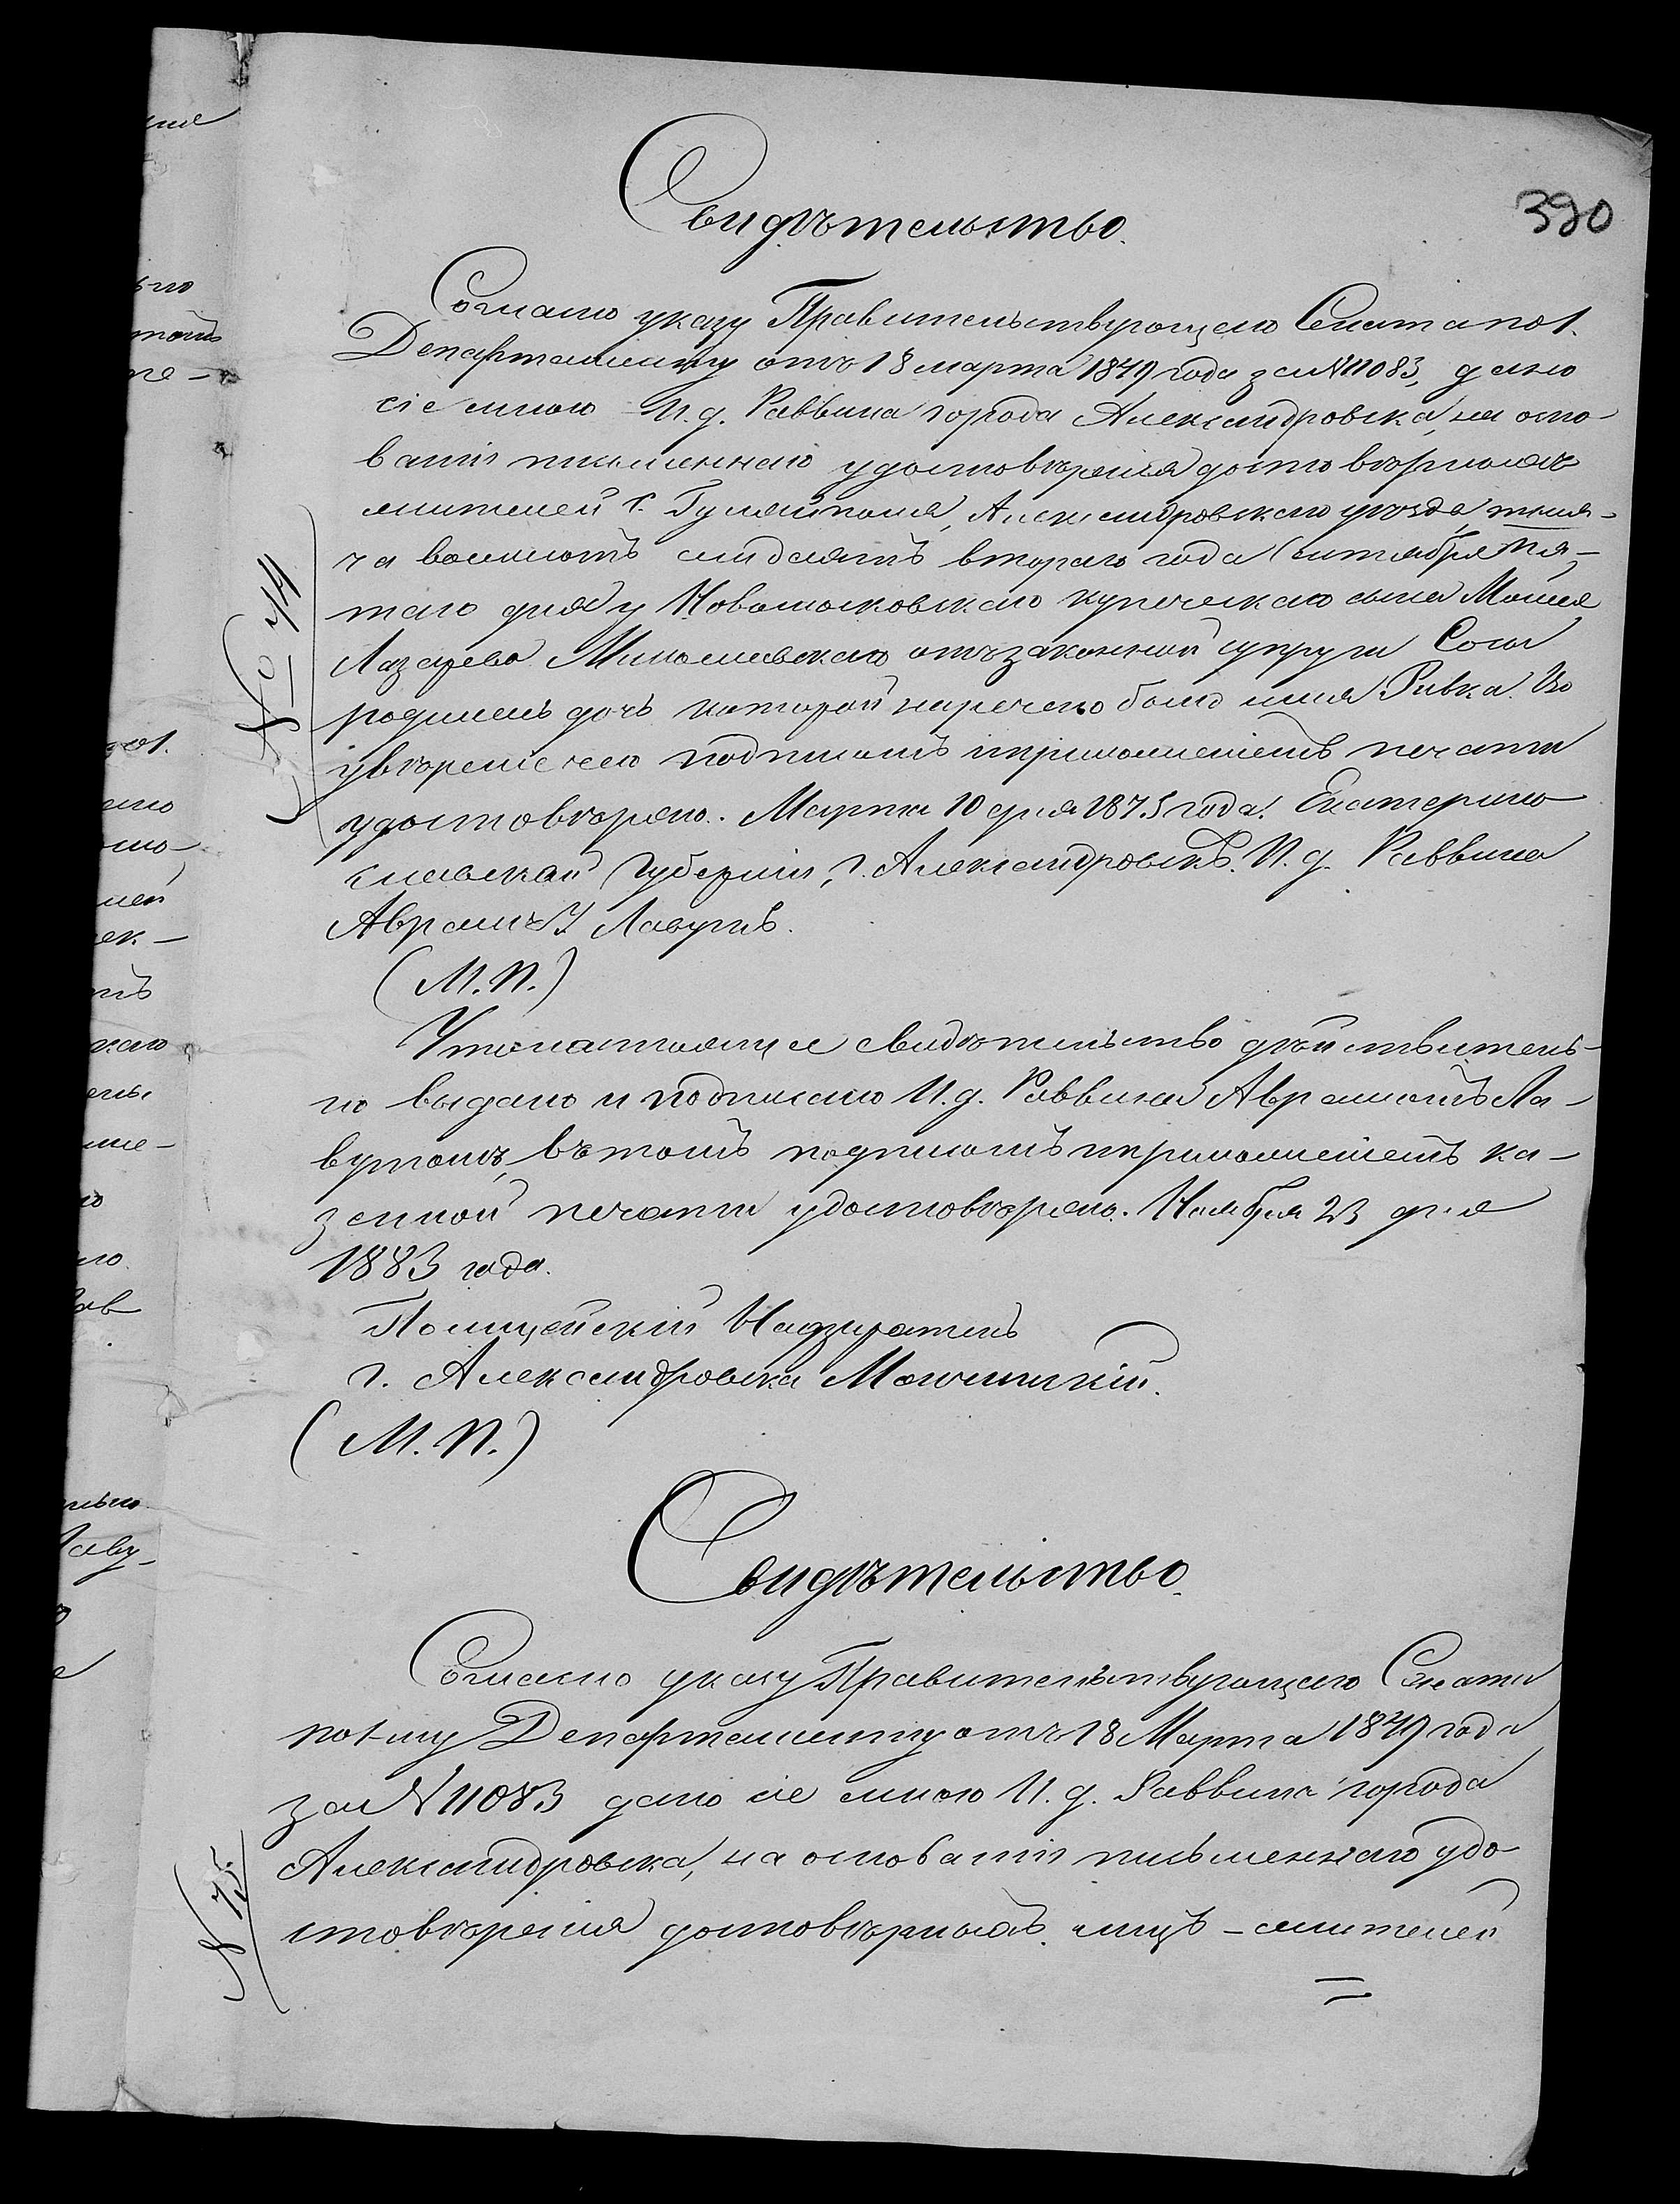 390
Свидѣтельство.
Согласно указу Правительствующаго Сената по 1.
Департаменту отъ 18 марта 1849 года за №11083, дано
сіе мною И. д. Раввина города Александровска, на осно-
ваніи письменнаго удостовѣренія достовѣрныхъ
жителей с. Гуляйполя, Александровскаго уѣзда, тыся-
ча восемьсотъ семдесятъ втораго года Сентября пя-
таго дня у Новомосковскаго купеческаго сына Мошея
Лазарева отъ законной супруги Соси
родилась дочь которой наречено было имя Ривка. Во
увѣреніе чего подписомъ и приложеніемъ печати
удостовѣряю. Марта 10 дня 1875 года. Екатерино-
славской Губерніи, г. Александровскъ. И. д. Раввина
Абрамъ Лавутъ.
(М. П.)
№ 74
Что настоящее свидѣтельство дѣйствитель-
но выдано и подписано И. д. Раввина Абрамомъ Ла-
вутомъ, въ томъ подписомъ и приложеніемъ ка-
зенной печати удостовѣряю. Ноября 23 дня
1883 года.
Полицейскій Надзиратель
г. Александровска
(М. П.)
Свидѣтельство.
Согласно указу Правительствующаго Сената
по 1-му Департаменту отъ 18 Марта 1849 года
за №11083 дано сіе мною И. д. Раввина города
Александровска, на основаніи письменнаго удо-
стовѣренія достовѣрныхъ лицъ - жителей
№ 75.